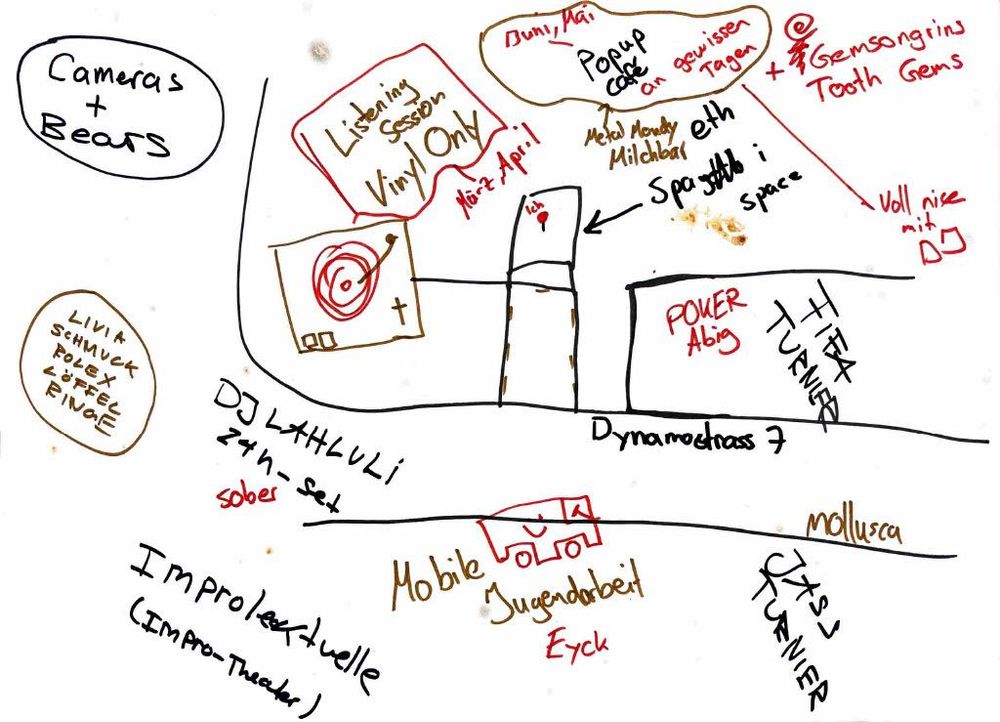 Cameras
+
Bears
Listening
Session
Vinyl Only
März, April
Juni, Mai
Popup
café
an gewissen
Tagen
+ Gemsongrins
Tooth Gems
Metal Mondy
Milchbar
eth
i
space
Ich
Voll nise
mit
DJ
LIVIA
SCHMUCK
ROLEX
LÖFFEL
RINGE
POKER
Abig
FIFA
TURNIER
Dynamostrass 7
DJ LAHLULi
24h-set
sober
Mollusca
Mobile
Jugendarbeit
Eyck
JASS
TURNIER
Improlektuelle
(Impro-Theater)